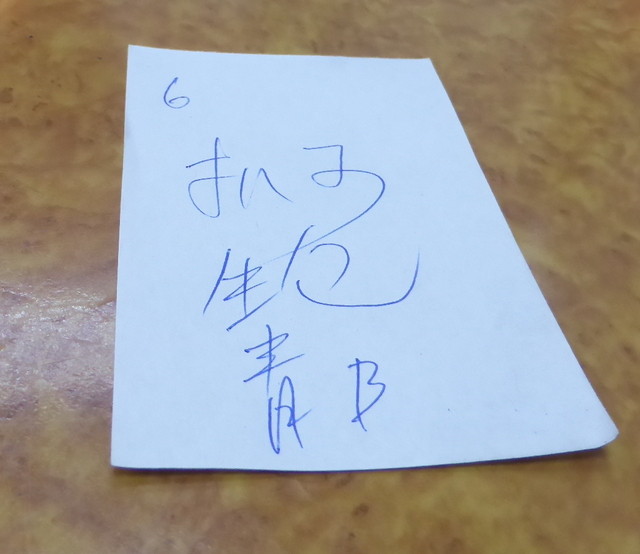 6
扒子
生包
青B